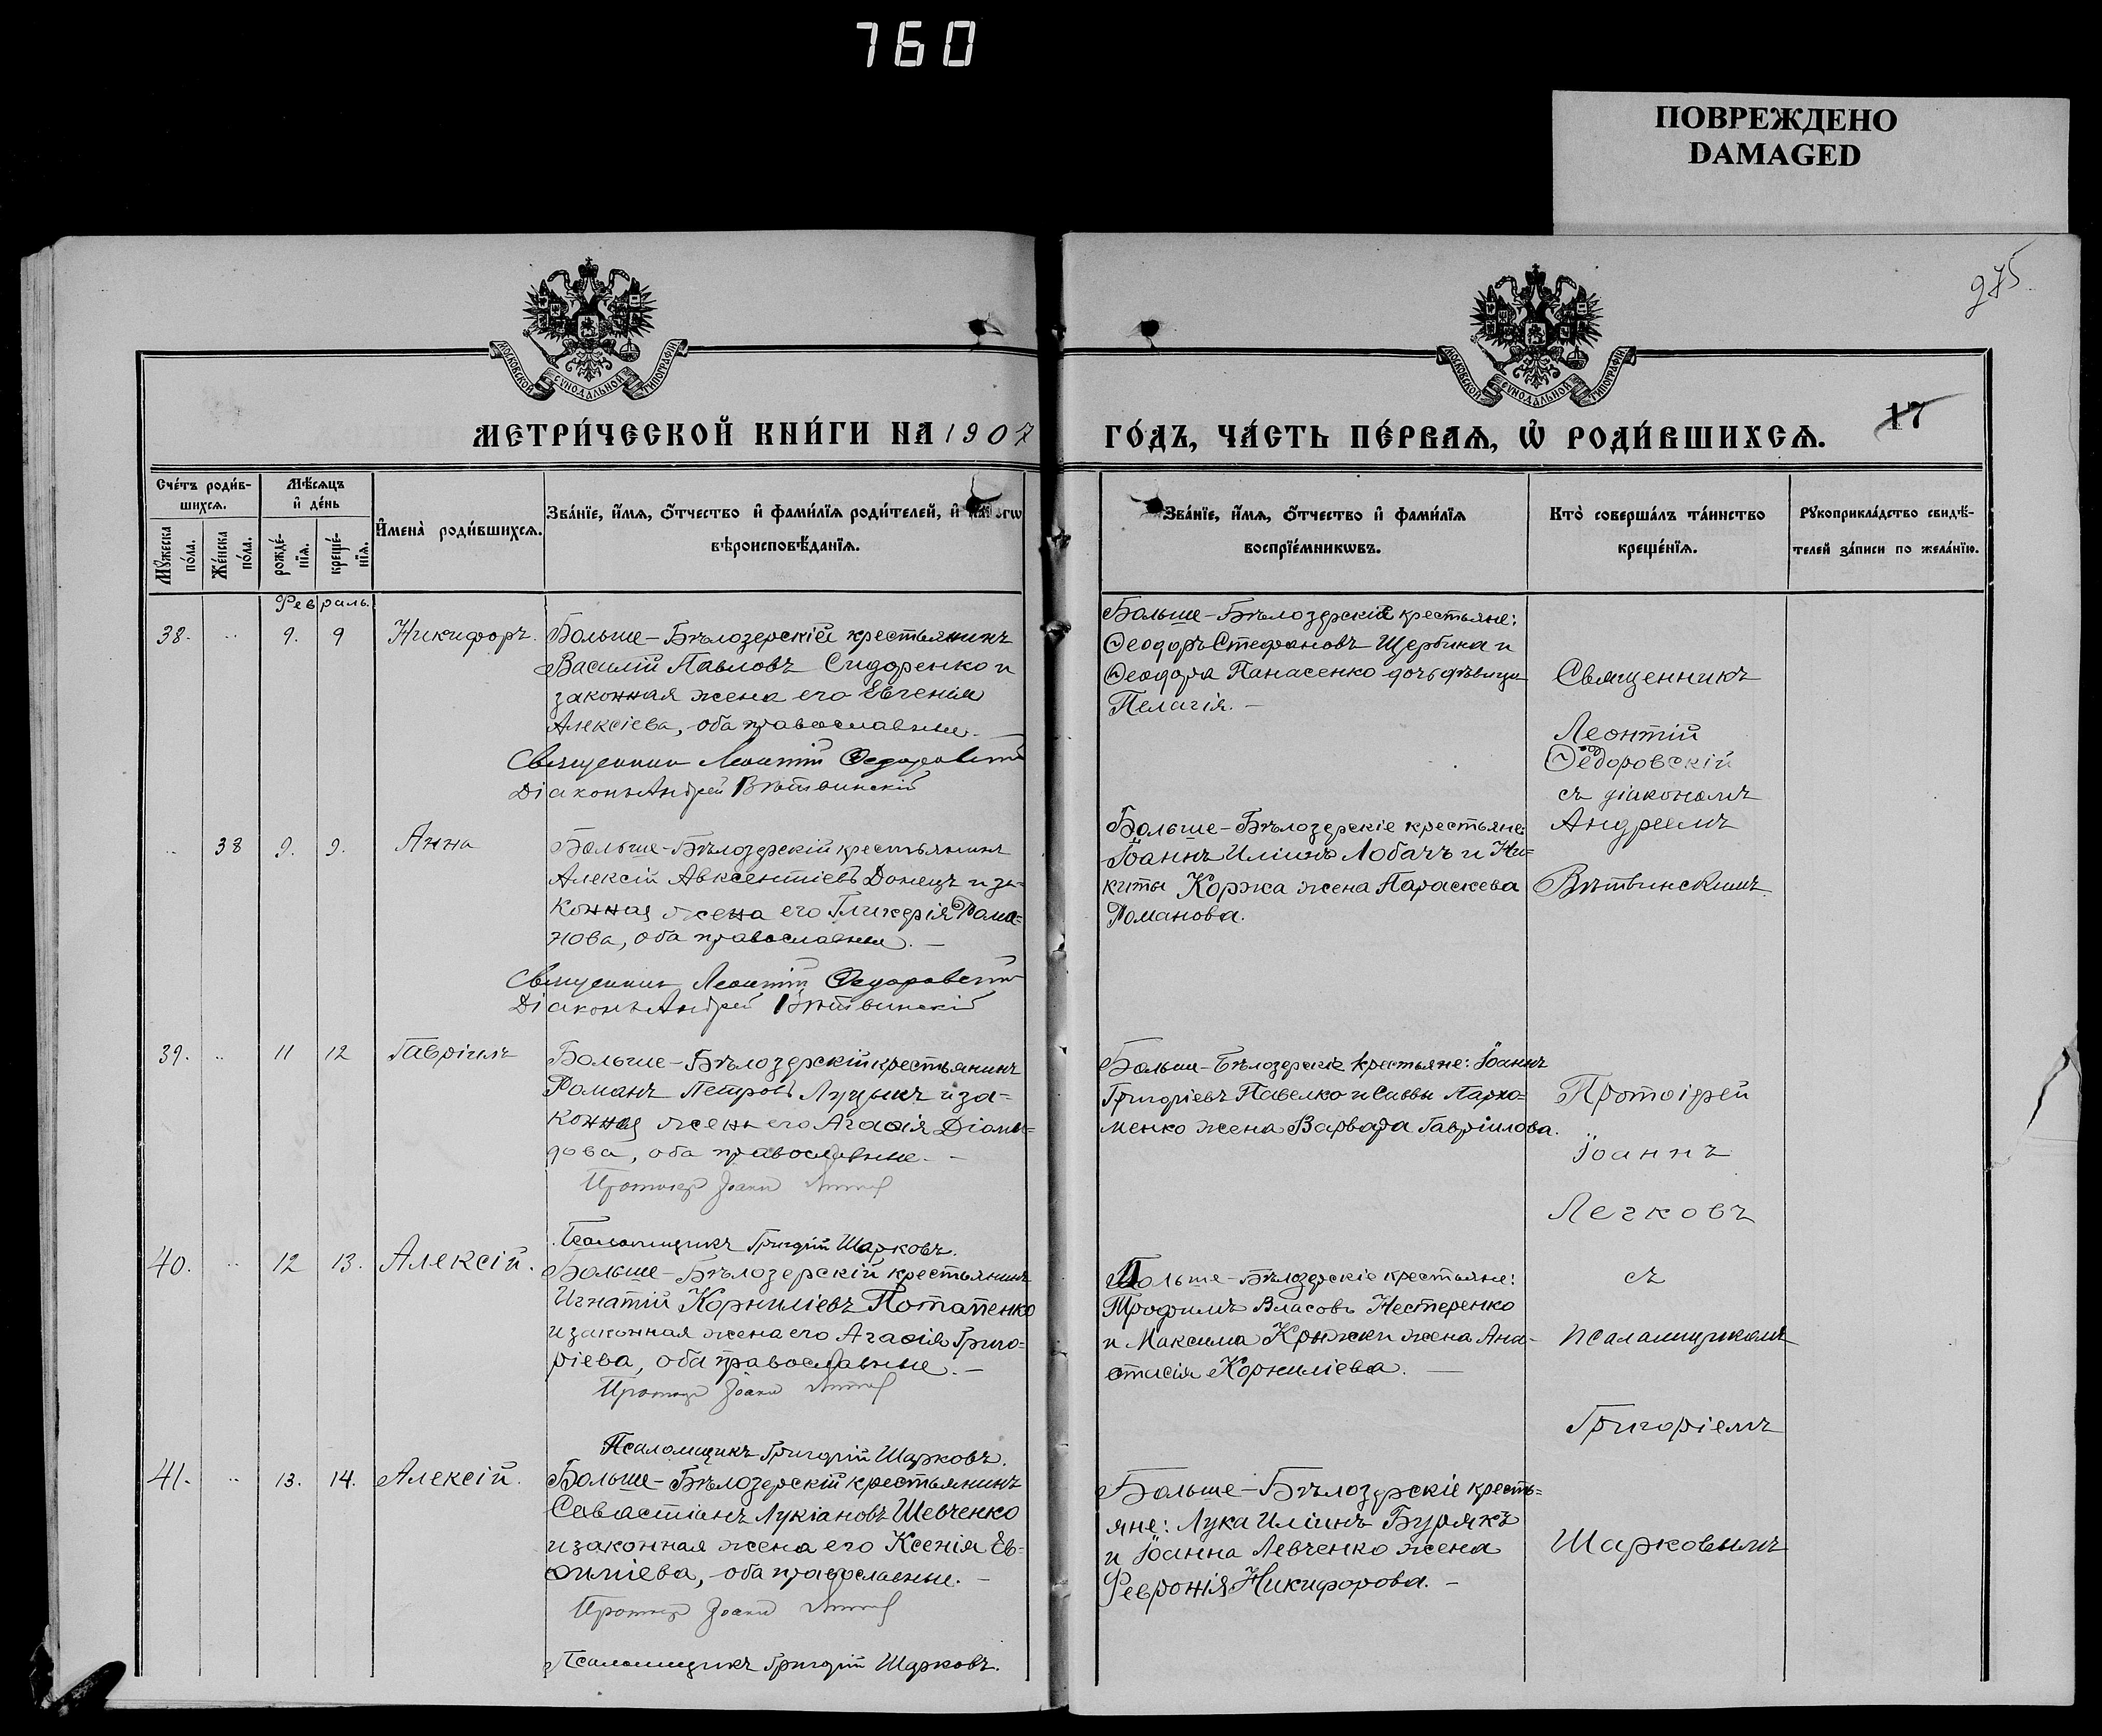 760
ПОВРЕЖДЕНО
DAMAGED
275
МОСКОВСКОЙ СѴНОДАЛЬНОЙ ТИПОГРАФІИ
МОСКОВСКОЙ СѴНОДАЛЬНОЙ ТИПОГРАФІИ
МЕТРИ́ЧЕСКОЙ КНИ́ГИ НА 1907
ГО́ДЪ, ЧА́СТЬ ПЕ́РВАЯ, Ѡ҆ РОДИ́ВШИХСѦ.
17
Сче́тъ роди́в-
шихсѧ.
Мѣ́сѧцъ
и҆ де́нь
Мꙋ́жеска
по́ла.
Же́нска
по́ла.
рожде́-
нїѧ.
креще́-
нїѧ.
И҆мена̀ роди́вшихсѧ.
Зва́нїе, и҆́мѧ, ѻ҆́тчество и҆ фами́лїѧ роди́телей, и҆
вѣроисповѣ́данїѧ.
Зва́нїе, и҆́мѧ, ѻ҆́тчество и҆ фами́лїѧ
воспрїе́мникѡвъ.
Кто̀ соверша́лъ та́инство
креще́нїѧ.
Рꙋкоприкла́дство свидѣ́-
телей за́писи по жела́нїю.
Февраль.
38. .. 9. 9 Никифоръ.
Больше-Бѣлозерскій крестьянинъ
Василій Павловъ Сидоренко и
законная жена его Евгенія
Алексіева, оба православные. —
Священник Леонтій Ѳедоровскій
Діаконъ Андрей Вѣтвинскій
Больше-Бѣлозерскіе крестьяне:
Ѳеодоръ Стефановъ Щербина и
Ѳеодора Панасенко дочь дѣвица
Пелагія. —
Священникъ
Леонтій
Ѳедоровскій
съ діакономъ
Андреемъ
Вѣтвинскимъ
.. 38 9. 9. Анна
Больше-Бѣлозерскій крестьянинъ
Алексій Авксентіевъ Донецъ и за-
конная жена его Гликерія Рома-
нова, оба православные. —
Священник Леонтій Ѳедоровскій
Діаконъ Андрей Вѣтвинскій
Больше-Бѣлозерскіе крестьяне:
Іоаннъ Иліинъ Лобачъ и Ни-
киты Коржа жена Параскева
Романова.
39. .. 11 12 Гавріилъ
Больше-Бѣлозерскій крестьянинъ
Романъ Петровъ Луцыкъ и за-
конная жена его Агаѳія Діоми-
дова, оба православные. —
Протоіер Іоанн
Псаломщикъ Григорій Шарковъ.
Больше-Бѣлозерскіе крестьяне: Іоаннъ
Григоріевъ Павелко и Саввы Пархо-
менко жена Варвара Гавріилова.
Протоіерей
Іоаннъ
Легковъ
съ
псаломщикомъ
Григоріемъ
Шарковымъ
40. .. 12 13. Алексій.
Больше-Бѣлозерскій крестьянинъ
Игнатій Корниліевъ Потапенко
и законная жена его Агаѳія Григо-
ріева, оба православные. —
Протоіер Іоанн
Псаломщикъ Григорій Шарковъ.
Больше-Бѣлозерскіе крестьяне:
Трофимъ Власовъ Нестеренко
и Максима Крыжки жена Ана-
стасія Корниліева. —
41. .. 13. 14. Алексій.
Больше-Бѣлозерскій крестьянинъ
Севастіанъ Лукіановъ Шевченко
и законная жена его Ксенія Ев-
ѳиміева, оба православные. —
Протоіер Іоанн
Псаломщикъ Григорій Шарковъ.
Больше-Бѣлозерскіе кресть-
яне: Лука Иліинъ Бурякъ
и Іоанна Левченко жена
Февронія Никифорова. —